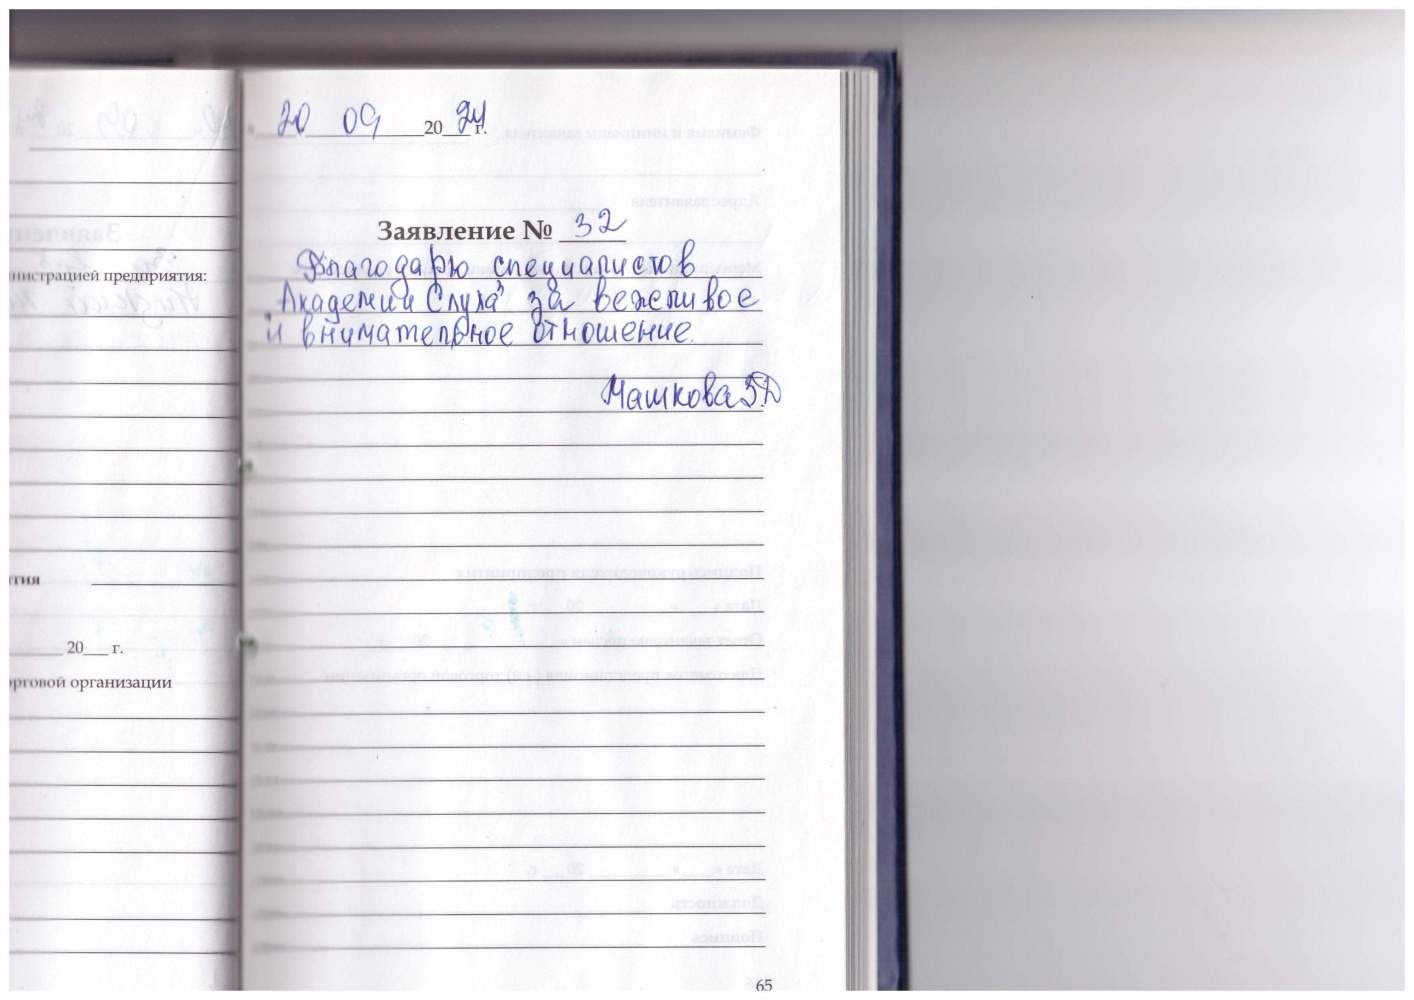 20 09 2024 г.
Заявление № 32
Благодарю специалистов
"Академии Слуха" за вежливое
и внимательное отношение.
Машкова З.Д
нистрацией предприятия:
тия
20___ г.
орговой организации
65